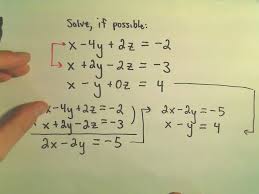 Solve, if possible:
x - 4y + 2z = -2
x + 2y - 2z = -3
x - y + 0z = 4
x - 4y + 2z = -2
x + 2y - 2z = -3
2x - 2y = -5
2x - 2y = -5
x - y = 4